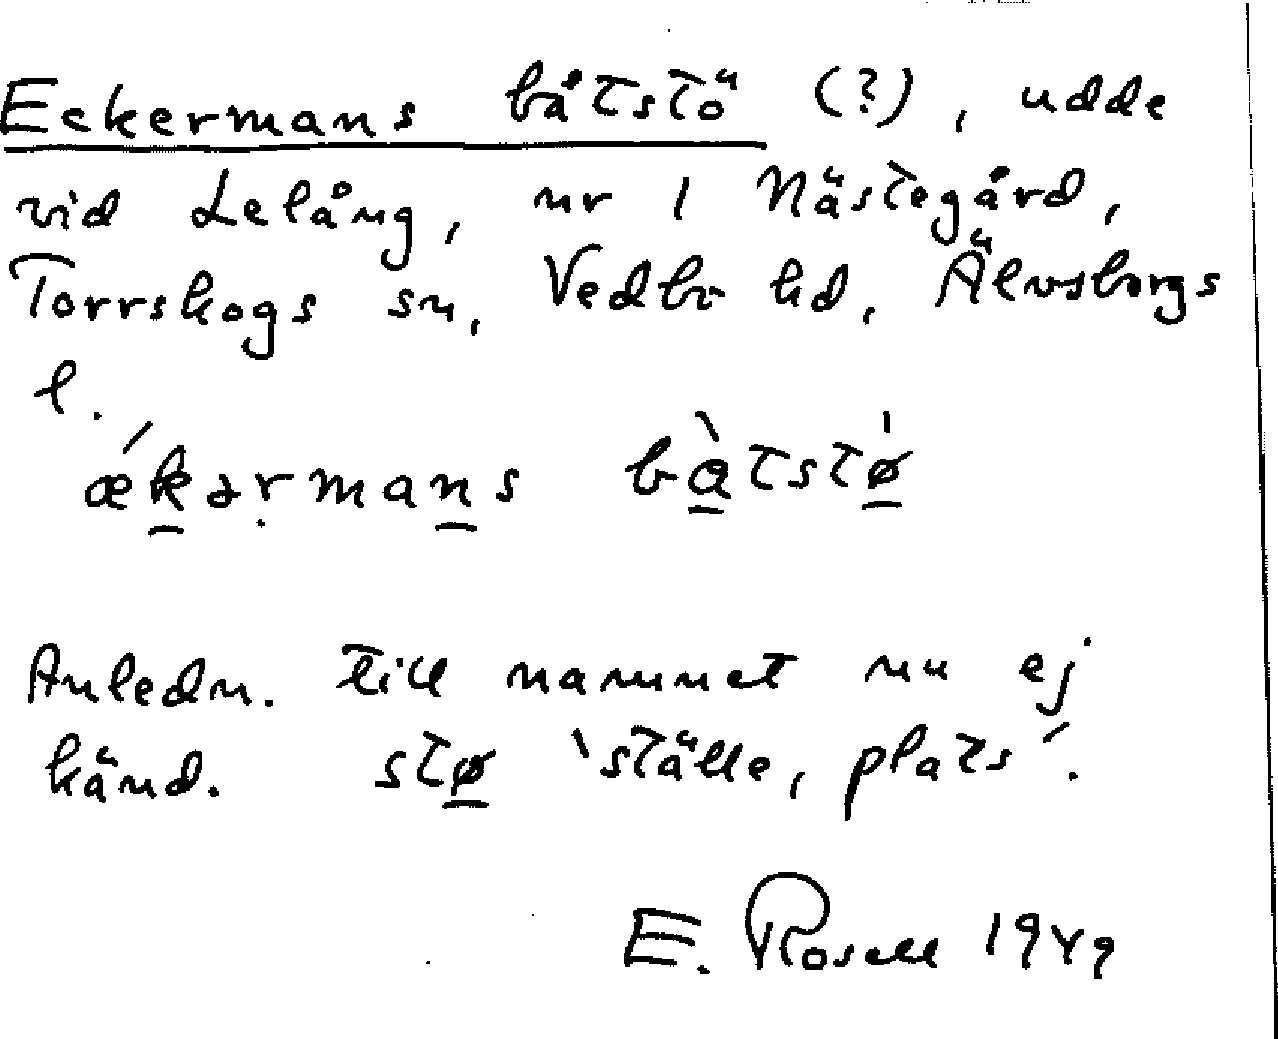 Eckermans båtstö (?), udde
vid Lelång, nr 1 Nästegård,
Torrskogs sn, Vedbo hd, Älvsborgs
l.
ǽkərmans bàtstø̍
Anledn. till namnet nu ej
känd. stø 'ställe, plats'.
E. Rosell 1949